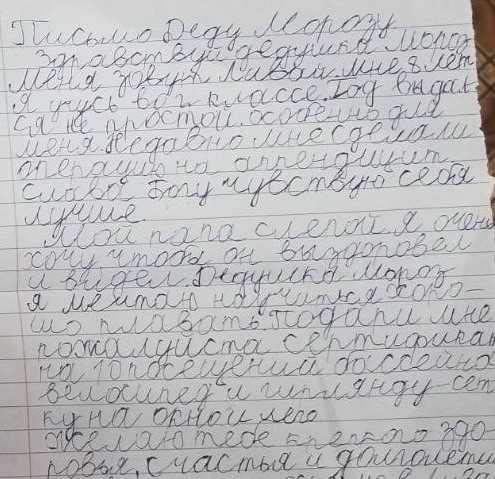 Письмо Деду Морозу
Здравствуй дедушка Мороз
меня зовут Ливай мне 8 лет
Я учусь во 2 классе. Год выдал-
ся не простой, особенно для
меня. Недавно мне сделали
операцию на аппендицит
Слава Богу чувствую себя
лучше.
Мой папа слепой, я очень
хочу, чтобы он выздоровел
и видел. Дедушка Мороз
я мечтаю научиться хоро-
шо плавать. Подари мне
пожалуйста сертификат
на 10 посещений бассейна
велосипед и гирлянду-сет
ку на окно и лего
Желаю тебе крепкого здо-
ровья, счастья и долголетия